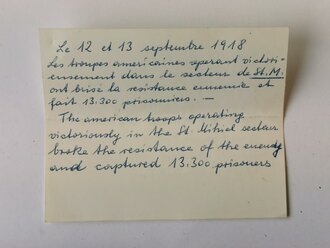 Le 12 et 13 septembre 1918
Les troupes americaines operant victori-
eusement dans le secteur de St. M.
ont brisé la resistance ennemie et
fait 13.300 prisonniers. —
The american troops operating
victoriously in the St. Mihiel secteur
broke the resistance of the enemy
and captured 13.300 prisoners